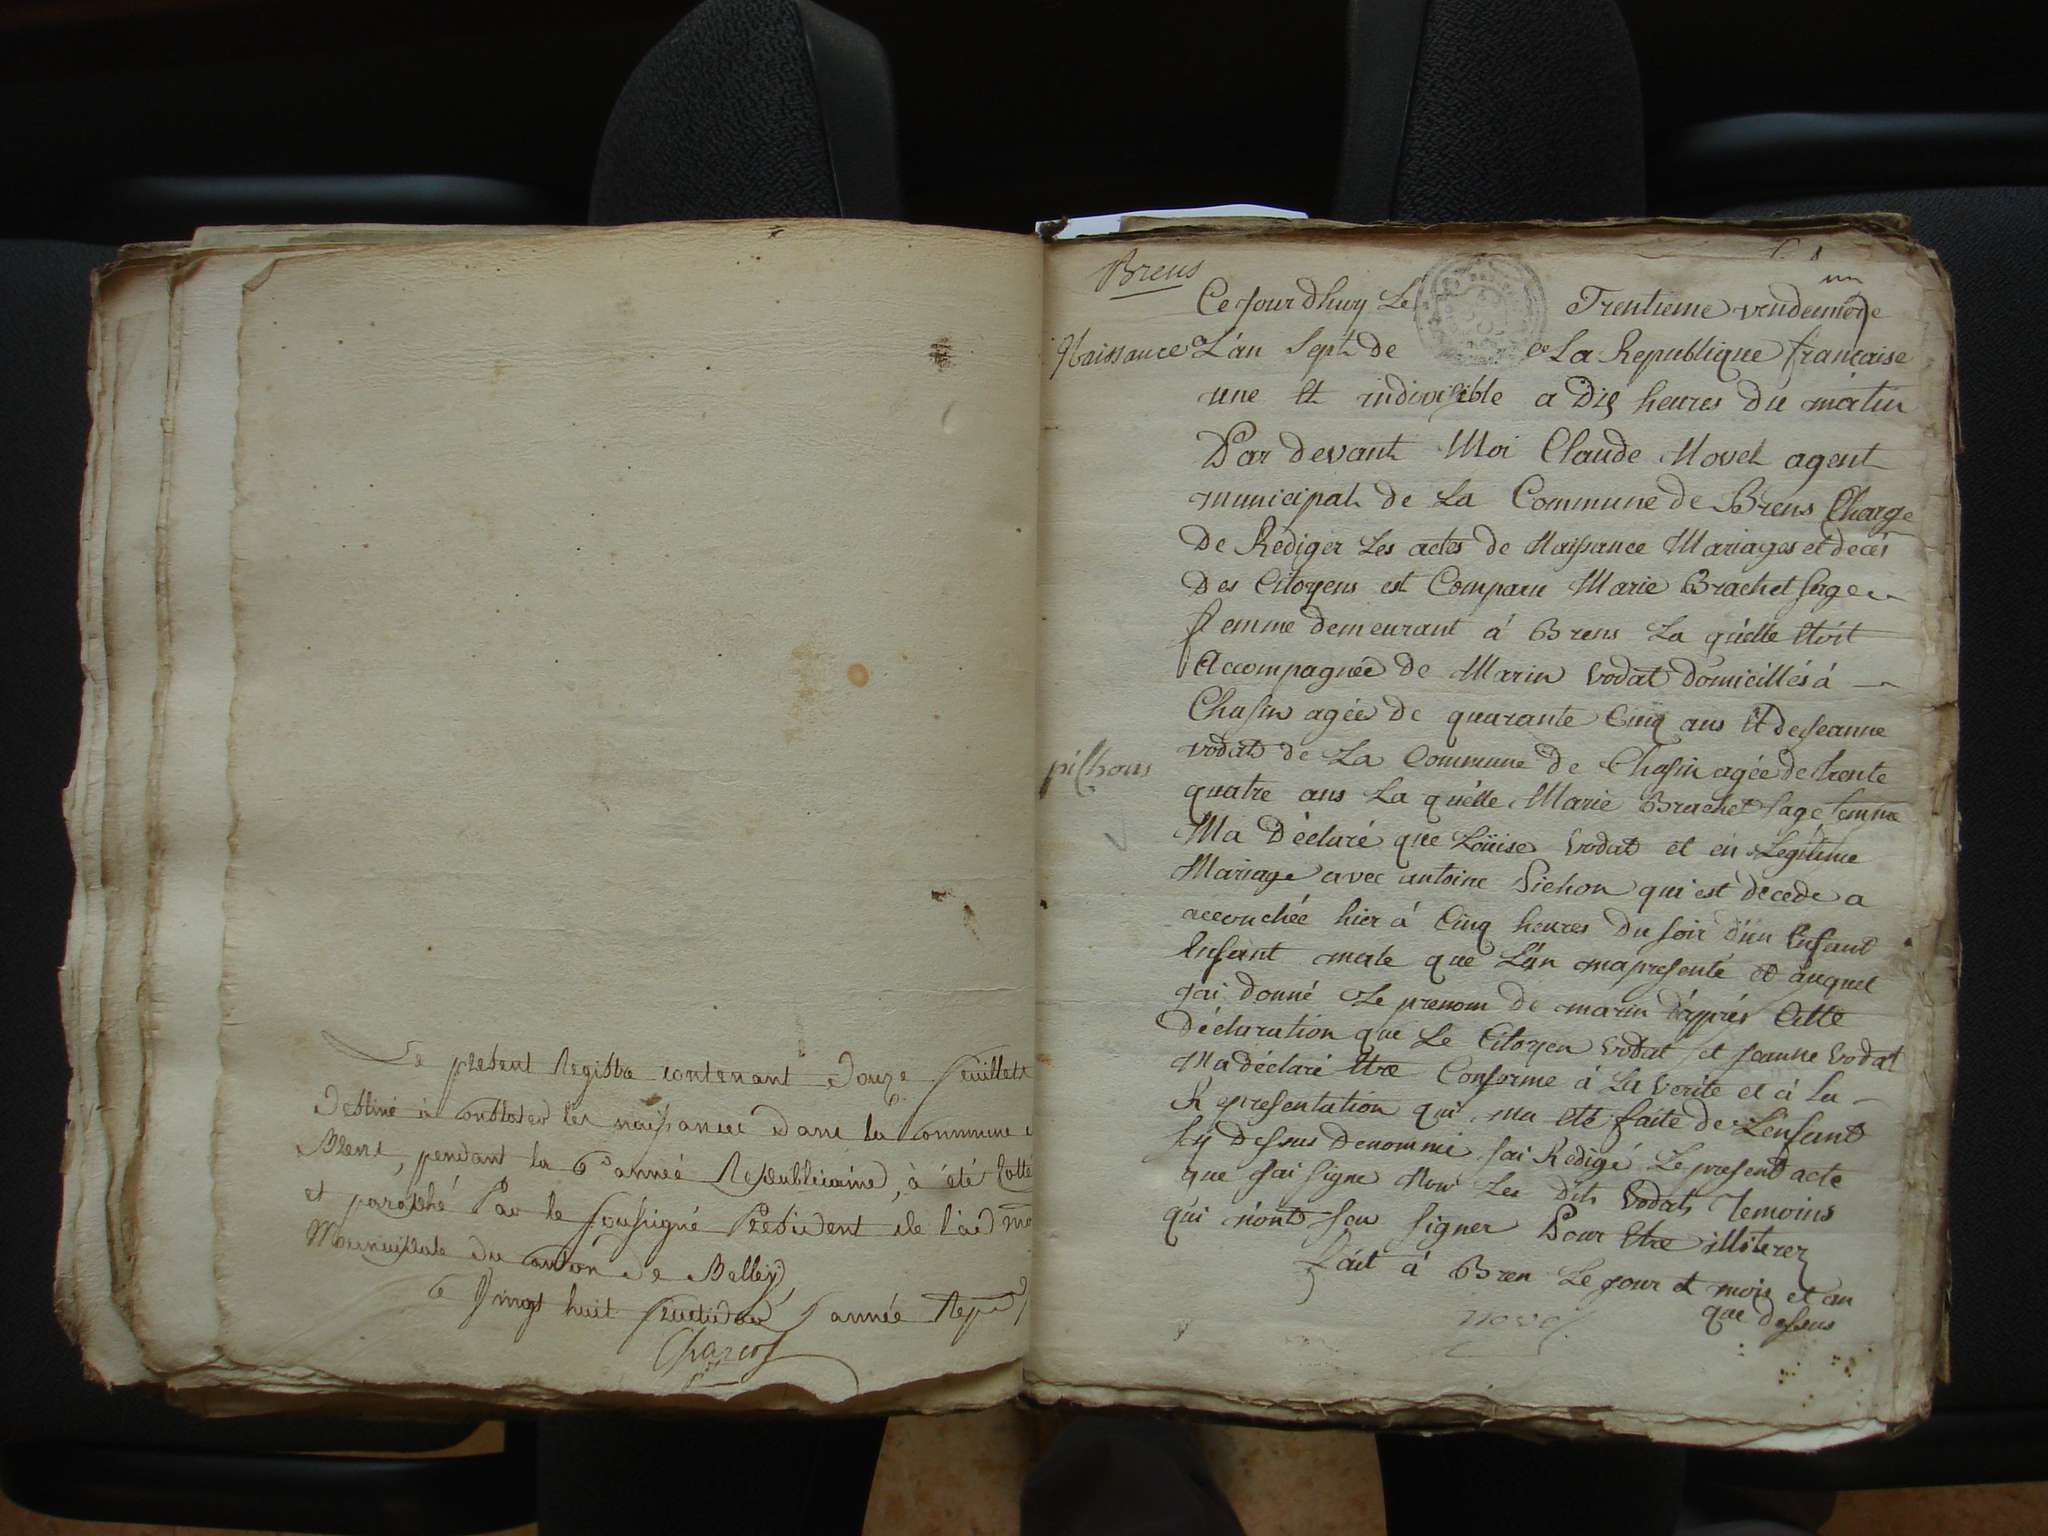 Le present Registre contenant douze feuillets
Destiné à constater les naissances dans la commune
Brens, pendant la année Republicaine, à été cotté
et paraphé Par le soussigné President de l'adm
Municipale du canton de Belley,
vingt huit fructidor année Rep
Brens
un
Ce jour dhuy Le Trentieme vendemiere
Naissance L'an Sept de La Republique française
une et indivisible a Dix heures du matin
Par devant Moi Claude Novel agent
municipal de La Commune de Brens Charge
De Rediger Les actes de Naissance Mariages et decès
Des Citoyens est Comparu Marie Brachet sage
femme demeurant á Brens La quelle étoit
Accompagnée de Marin Vodat domicillés á
Chasin agée de quarante Cinq ans Et de jeanne
vodat de La Commune de Chasin agée de trente
pichons
quatre ans La quelle Marie Brachet Sage femme
Ma Déclaré que Loüise Vodat et en Legitime
Mariage avec antoine Pichon qui est decede a
accouchée hier á Cinq heures Du soir d'un Enfant
Enfant male que L'on ma presenté et auquel
jai donné Le prenom de marin d'apprés Cette
Déclaration que Le Citoyen vodat et jeanne Vodat
Ma déclaré Etre Conforme á La Verite et á la
Representation qui ma été faite de L'enfant
Cy Dessus Denommé jai Redigé Le present acte
que jai signe Non Les Dits Vodats Temoins
qui n'ont seu signer Pour Etre illiterez
fait á Bren Le jour et mois et an
que dessus
novel